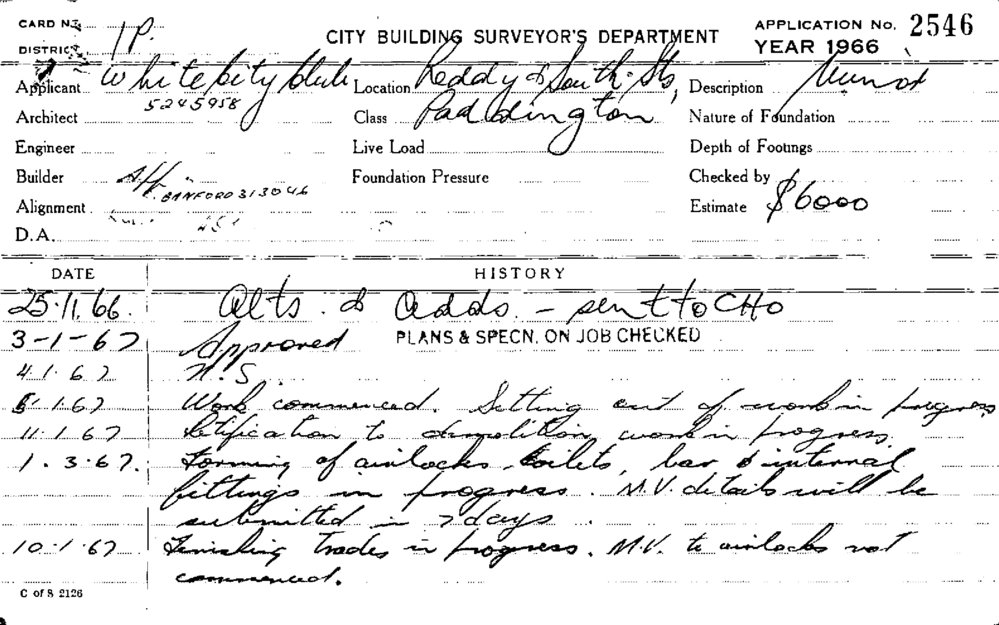 CARD No. 1P.
CITY BUILDING SURVEYOR'S DEPARTMENT
APPLICATION No. 2546
DISTRICT
YEAR 1966
Applicant White City Club Location Reddy & South Sts, Description Minor
5245958
Architect Class Paddington Nature of Foundation
Engineer Live Load Depth of Footings
Builder BANFORD 313046 Foundation Pressure Checked by
Alignment Estimate $6000
D.A.
DATE HISTORY
25.11.66. Alts. & Adds. - sent to CHO
3-1-67 Approved PLANS & SPECN. ON JOB CHECKED
4.1.67 N.S.
5.1.67 Work commenced. Setting out of work in progress
11.1.67 to demolition work in progress.
1.3.67. Forming of airlocks toilets, bar & internal
fittings in progress. M.V. details will be
submitted in 7 days.
10.1.67 Finishing trades in progress. M.V. to airlocks not
commenced.
C of S 2126